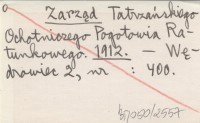 Zarząd Tatrzańskiego
Ochotniczego Pogotowia Ra-
tunkowego. 1912. — Wę-
drowiec 2, nr : 400.